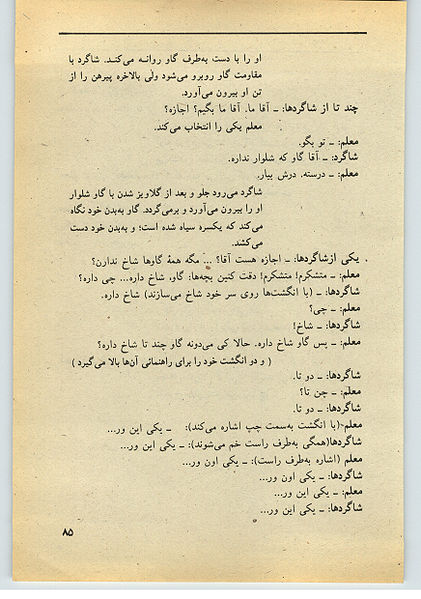 او را با دست به‌طرف گاو روانه می‌کند. شاگرد با
مقاومت گاو روبرو می‌شود ولی بالاخره پیرهن را از
تن او بیرون می‌آورد.
چند تا از شاگردها: ــ آقا ما. آقا ما بگیم؟ اجازه؟
معلم یکی را انتخاب می‌کند.
معلم: ــ تو بگو.
شاگرد: ــ آقا گاو که شلوار نداره.
معلم: ــ درسته. درش بیار.
شاگرد می‌رود جلو و بعد از گلاویز شدن با گاو شلوار
او را بیرون می‌آورد و برمی‌گردد. گاو به‌بدن خود نگاه
می‌کند که یکسره سیاه شده است؛ و به‌بدن خود دست
می‌کشد.
یکی ازشاگردها: ــ اجازه هست آقا؟ ... مگه همهٔ گاوها شاخ ندارن؟
معلم: ــ متشکرم! متشکرم! دقت کنین بچه‌ها: گاو، شاخ داره... چی داره؟
شاگردها: ــ (با انگشت‌ها روی سر خود شاخ می‌سازند) شاخ داره.
معلم: ــ چی؟
شاگردها: ــ شاخ!
معلم: ــ پس گاو شاخ داره. حالا کی می‌دونه گاو چند تا شاخ داره؟
( و دو انگشت خود را برای راهنمائی آن‌ها بالا می‌گیرد )
شاگردها: ــ دو تا.
معلم: ــ چن تا؟
شاگردها: ــ دو تا.
معلم-(با انگشت به‌سمت چپ اشاره می‌کند): ــ یکی این ور...
شاگردها(همگی به‌طرف راست خم می‌شوند): ــ یکی این ور...
معلم (اشاره به‌طرف راست): ــ یکی اون ور...
شاگردها: ــ یکی اون ور...
معلم: ــ یکی این ور...
شاگردها: ــ یکی این ور...
۸۵